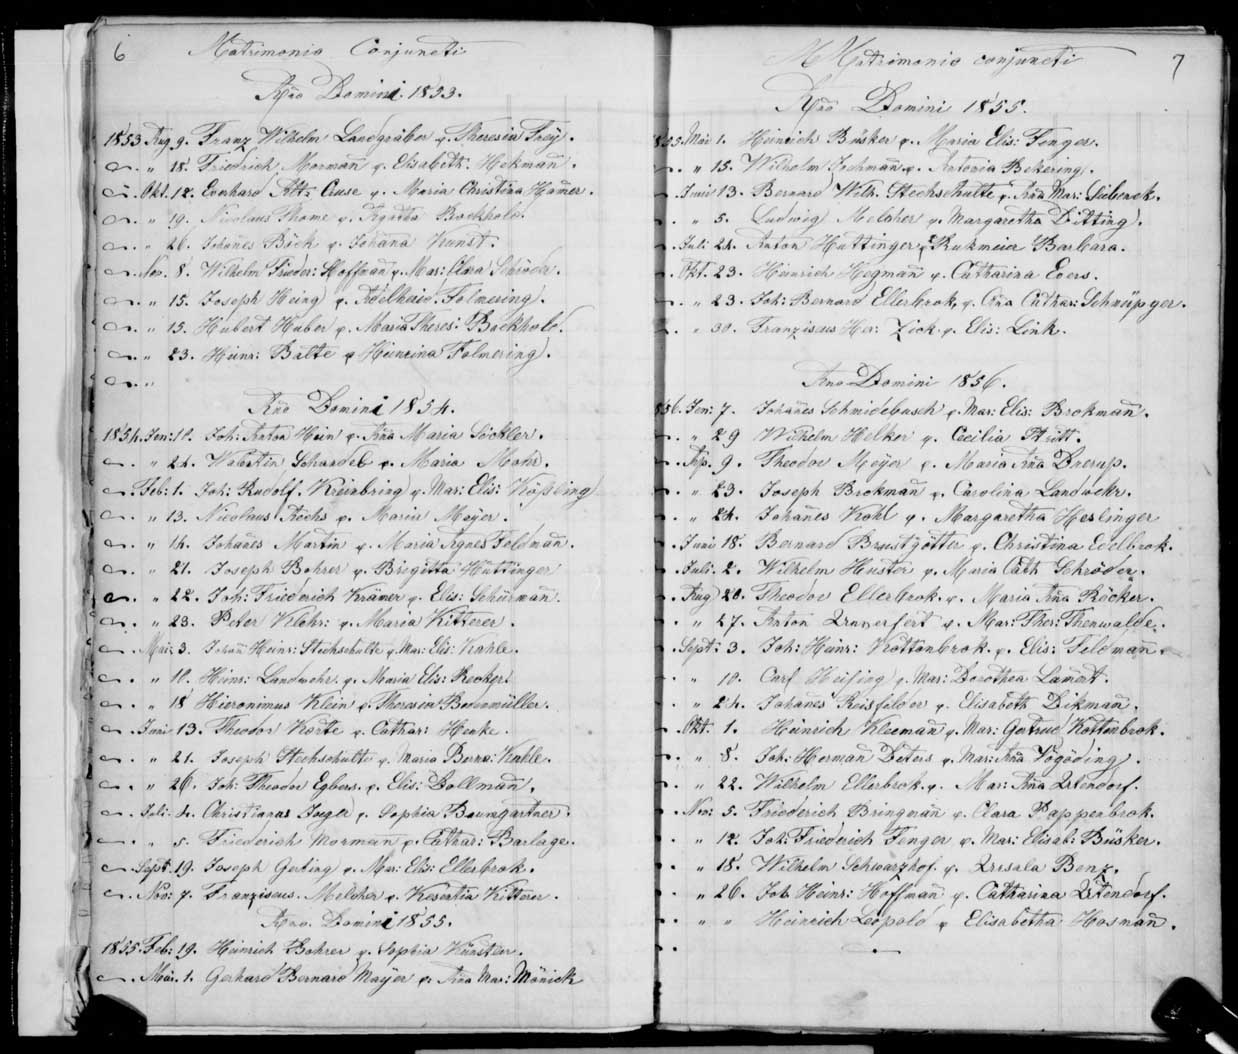 6 Matrimonio Conjuncti
Año Domini 1853.
1853 Aug 9. Franz Wilhelm Landgräber u. Theresia Frey.
" 18. Friedrich Mormañ u. Elisabeth Hekmañ.
Okt. 12. Everhard Cruse u. Maria Christina Hamer.
" 19. Nicolaus Thome u. Agatha Bockhold.
" 26. Johañes Böck u. Johana Kunst.
Nov. 8. Wilhelm Frieder: Hoffmañ u. Mar: Clara Schröder.
" 15. Joseph Heing u. Adelheid Folmering.
" 15. Hubert Huber u. Maria Theres: Bockhold.
" 23. Heinr: Balte u. Heinrina Folmering.
"
Año Domini 1854.
1854. Jan: 10. Joh: Anton Hein u. Aña Maria Söckler.
" 24. Valentin Schaadel u. Maria Mohr.
Feb: 1. Joh: Rudolf Kreinbring u. Mar: Elis: Kößling
" 13. Nicolaus Rochs u. Maria Mayer.
" 14. Johañes Martin u. Maria Agnes Feldmañ.
" 21. Joseph Bohrer u. Brigitta Huttinger
" 22. Joh: Friederich Krämer u. Elis: Schürmañ.
" 23. Peter Klohr: u. Maria Kitterer.
Mai 3. Johañ Heinr: Stechschulte u. Mar: Elis: Kahle.
" 10. Heinr: Landwehr u. Maria Elis: Recker.
" 18 Hieronimus Klein u. Theresia Bodenmüller.
Juni 13. Theodor Korte u. Cathar: Henke.
" 21. Joseph Stechschulte u. Maria Bernd: Kahle.
" 26. Joh: Theodor Egbers u. Elis: Bollmañ.
Juli 4. Christianus Jogle u. Sophia Baumgartner.
" 5. Friederich Mormañ u. Cathar: Barlage.
Sept. 19. Joseph Gerting u. Mar: Elis: Ellerbrok.
Nov: 7. Franziscus Melcher u. Kesentia Kitterer.
Año Domini 1855.
1855 Feb: 19. Heinrich Bohrer u. Sophia Künstler.
Mär. 1. Gerhard Bernard Mayer u. Aña Mar: Mönick
Matrimonio conjuncti 7
Año Domini 1855.
Mai 1. Heinrich Büsker u. Maria Elis: Fenger.
" 15. Wilhelm u. Antonia Bekering.
Juni 13. Bernard Wilh. Stechschulte u. Aña Mar:
" 5. Ludwig Melcher u. Margaretha Ditting.
Juli 24. Anton Huttinger u. Rukmeier Barbara.
Okt. 23. Heinrich Hegmañ u. Catharina Evers.
" 23. Joh: Bernard Ellerbrok u. Aña Cathar: Schnüpger.
" 30. Franziscus Her: Zick u. Elis: Link.
Año Domini 1856.
Jan: 7. Johañes Schmidebusch u. Mar: Elis: Brokmañ.
" 29 Wilhelm Helker u. Cecilia Stritt.
Ap. 9. Theodor Meyer u. Maria Aña Drerup.
" 23. Joseph Brokmañ u. Carolina Landwehr.
" 24. Johañes Kohl u. Margaretha Heslinger
Juni 18. Bernard Brustgötter u. Christina Edelbrok.
Juli 2. Wilhelm Huster u. Maria Cath Schröder.
Aug 20. Theodor Ellerbrok u. Maria Aña Röcker.
" 27. Anton Unverfert u. Mar: Ther: Thenwalde.
Sept: 3. Joh: Heinr: Kottenbrok u. Elis: Feldmañ.
" 10. Carl Heising u. Mar: Dorothea Lament.
" 24. Johañes Reisfelder u. Elisabeth Dikmañ.
Okt. 1. Heinrich Kleemañ u. Mar: Gertrud Kottenbrok.
" 8. Joh: Hermañ Deters u. Mar: Aña Vogöding.
" 22. Wilhelm Ellerbrok u. Mar: Aña Utendorf.
Nov: 5. Friederich Bringmañ u. Clara Pappenbrok.
" 12. Joh: Friederich Fenger u. Mar: Elisab: Büsker.
" 18. Wilhelm Schwarzhof u. Ursala Benz.
" 26. Joh Heinr: Hoffmañ u. Catharina Utendorf.
" " Heinrich Leopold u. Elisabetha Hosmañ.